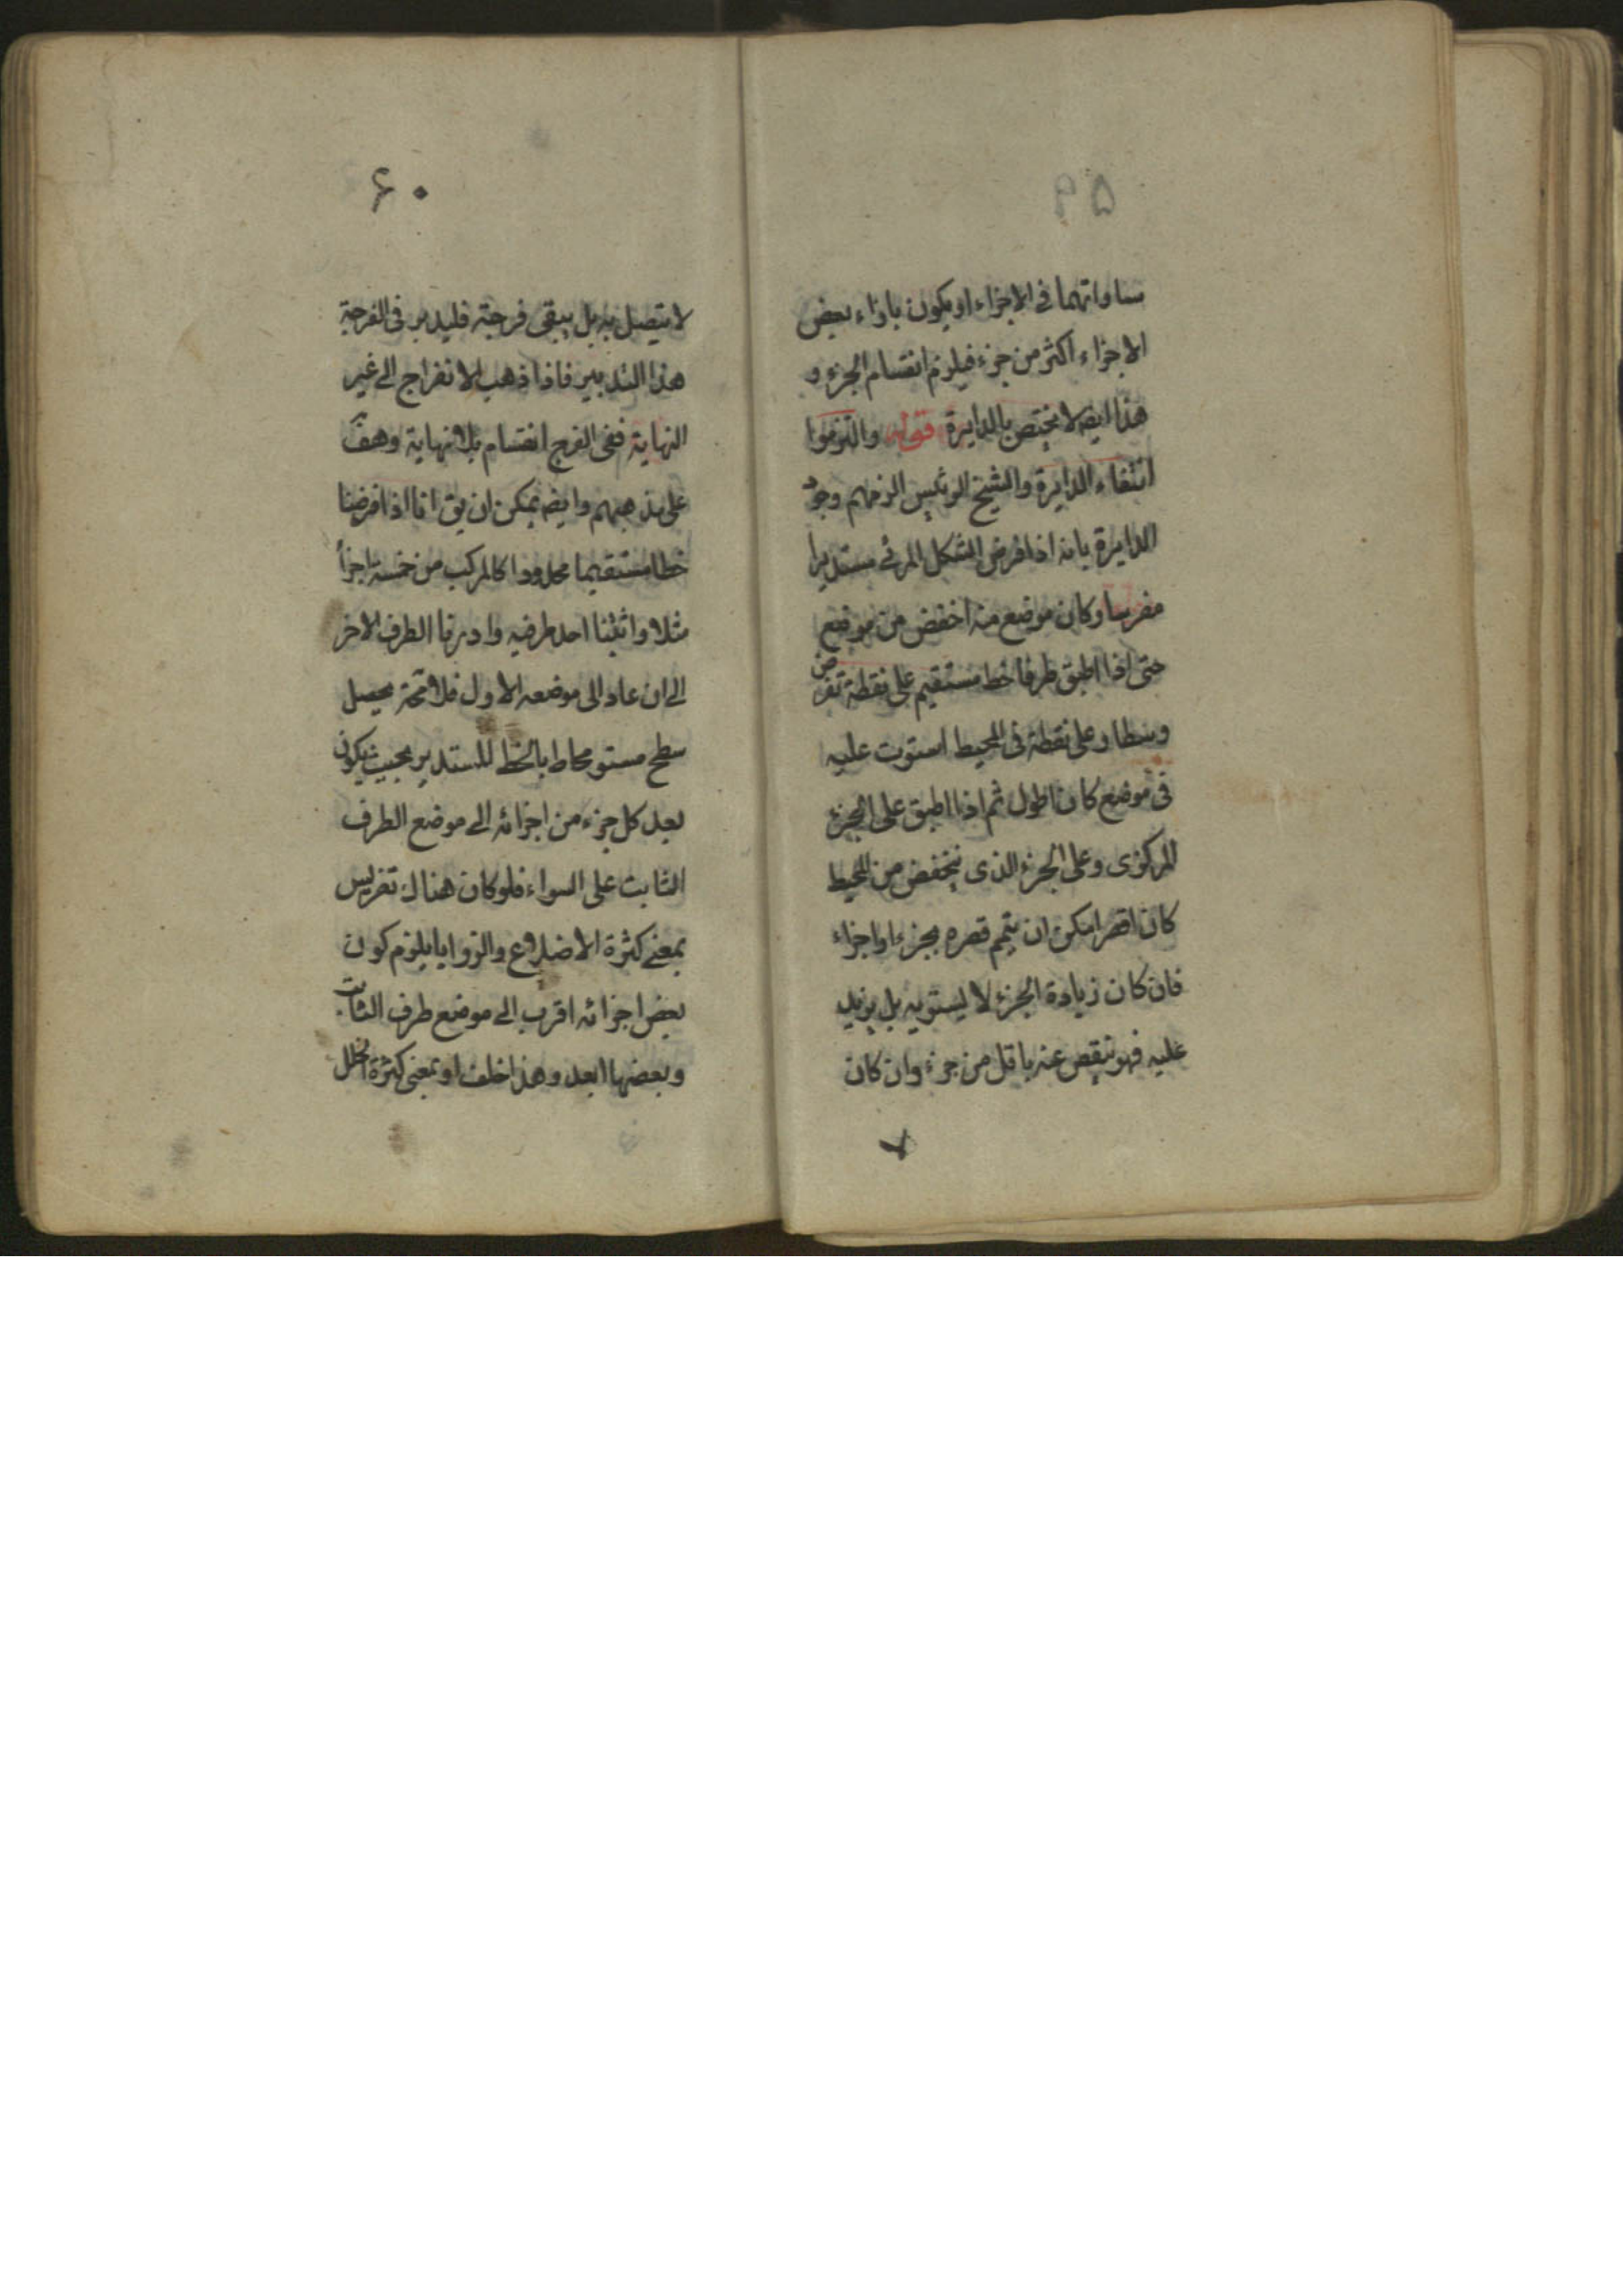 ۵۹
ساواتهما فى الاجزاء او يكون بازاء بعض
الاجزاء اكثر من جزء فيلزم انقسام الجزء و
هذا ايضه لا يختص بالدايرة قوله والتزموا
انتفاء الدايرة والشيخ الرئيس الزمهم وجود
الدايرة بانه اذا فرض الشكل المرئى مستديرا
مفرسا وكان موضع منه اخفض من موضع
حتى اذا اطبق طرفا خط مستقيم على نقطة تفرض
وسطا وعلى نقطة فى المحيط استوت عليه
فى موضع كان اطول ثم اذا اطبق على الجزء
المركزى وعلى الجزء الذى ينخفض من المحيط
كان اقصر امكن ان يتمم قصره بجزء او اجزاء
فان كان زيادة الجزء لا يستويه بل يزيد
عليه فهو ينقص عنه باقل من جزء وان كان
۶۰
لا يتصل به بل يبقى فرجته فليدبر فى الفرجة
هذا التدبير فاذا ذهب الانفراج الى غير
النهاية ففى الفرج انقسام بلا نهاية وهف
على مذهبهم وايضه يمكن ان يق انا اذا فرضنا
خطا مستقيما محدودا كالمركب من خمسة اجزأ
مثلا واثبتنا احد طرفيه وادرنا الطرف الاخر
الى ان عاد الى موضعه الاول فلا محة يحصل
سطح مستو محاط بالخط المستدير بحيث يكون
بعد كل جزء من اجزائه الى موضع الطرف
الثابت على السواء فلو كان هناك تفريس
بمعنى كثرة الاضلاع والزوايا يلزم كون
بعض اجزائه اقرب الى موضع طرف الثابت
وبعضها ابعد وهذا خلف او بمعنى كثرة الخلل